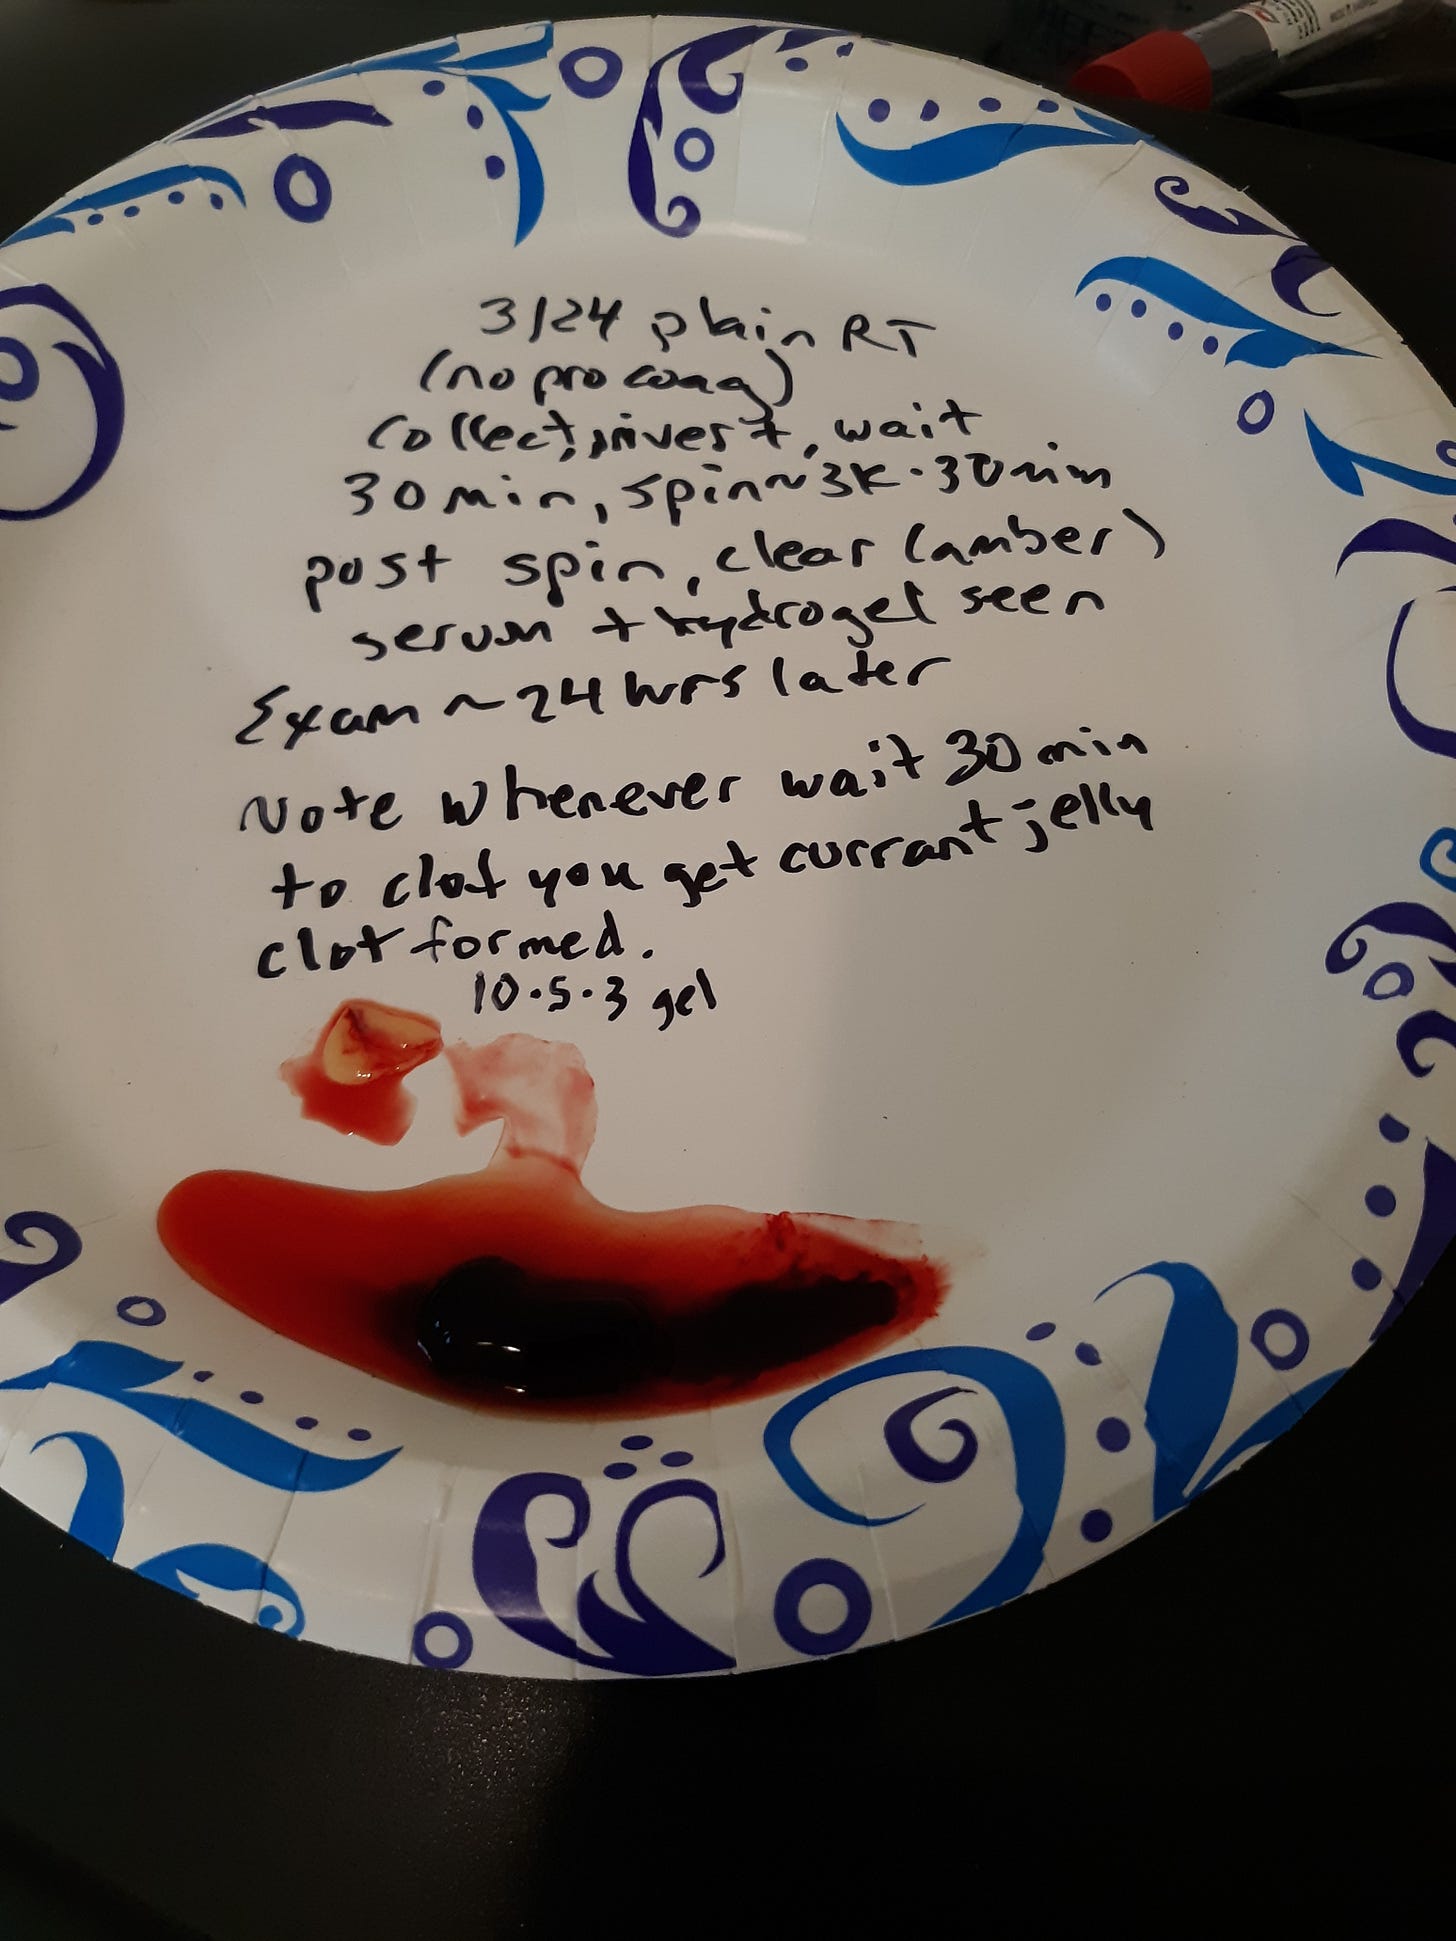 3/24 plain RT
(no procoag)
Collect, invert, wait
30 min, spin ~3K · 30 min
post spin, clear (amber)
serum + hydrogel seen
Exam ~24 hrs later
Note whenever wait 30 min
to clot you get currant jelly
clot formed.
10·5·3 gel